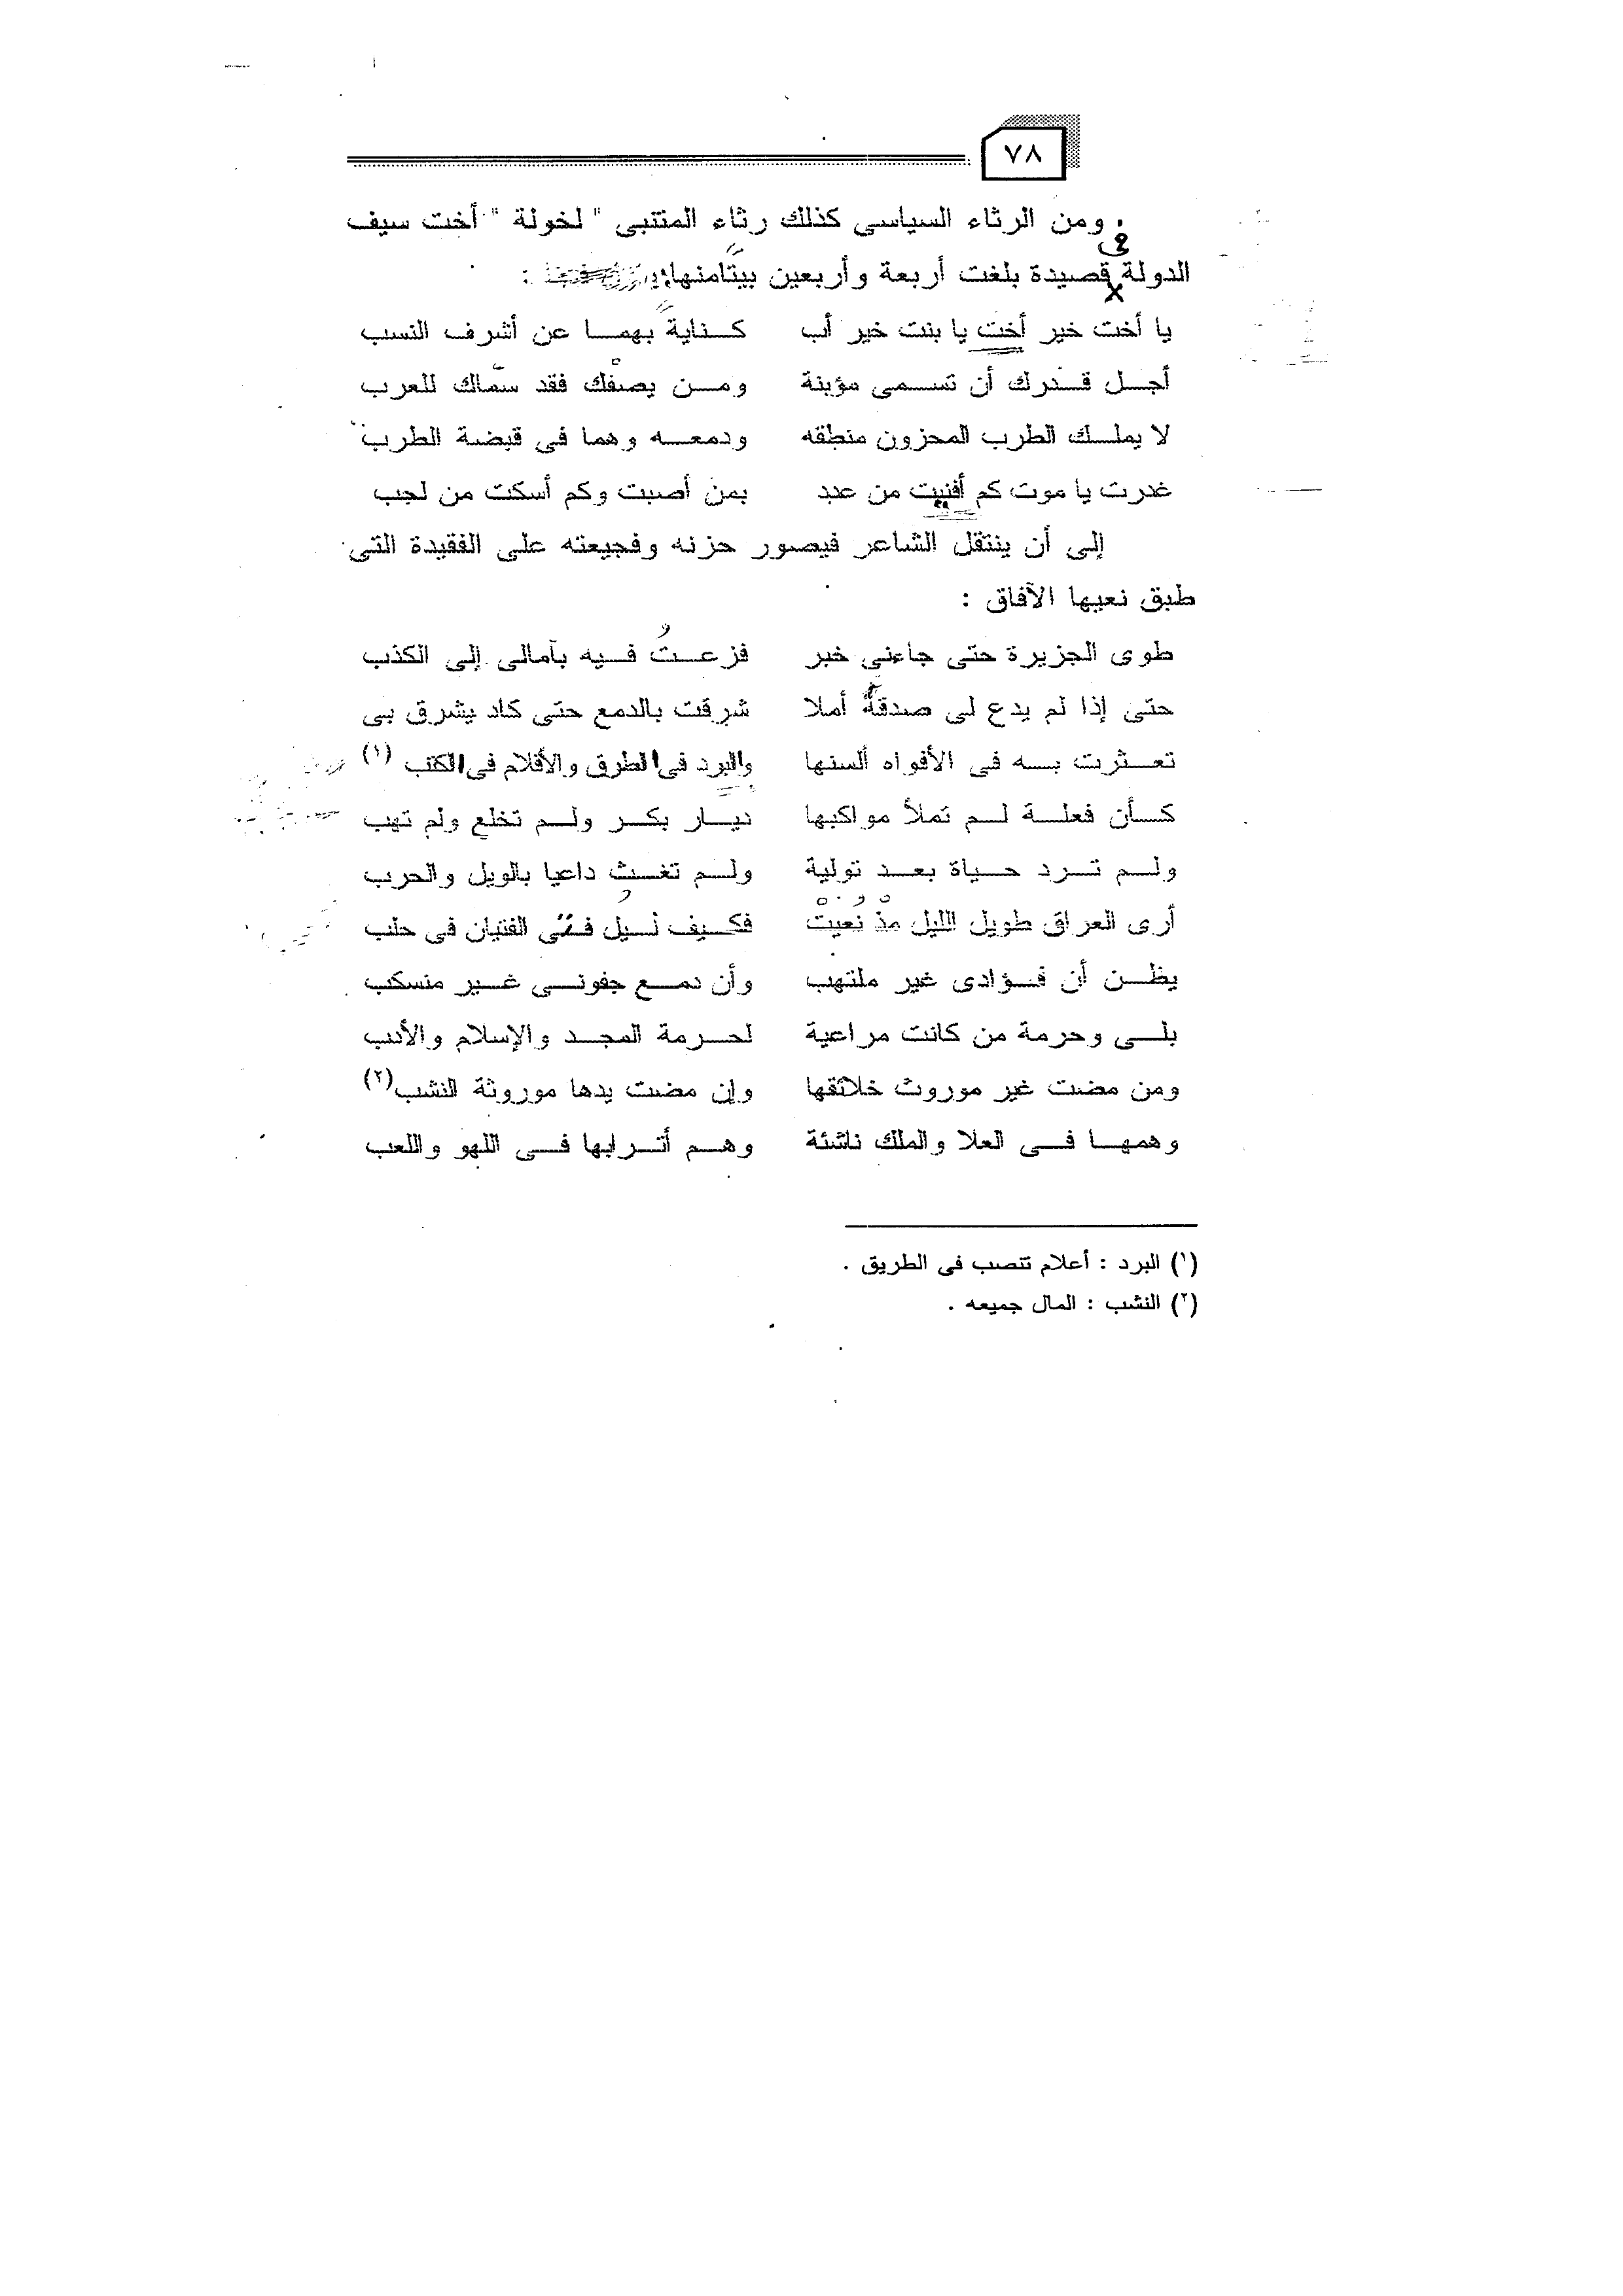 ٧٨
ومن الرثاء السياسى كذلك رثاء المتنبى " لخولة " أخت سيف
الدولة فى قصيدة بلغت أربعة وأربعين بيتًا منها :
يا أخت خير أخت يا بنت خير أب كـناية بهمـا عن أشرف النسب
أجـل قـدرك أن تسـمى مؤبنة ومـن يصفْك فقد سمّاك للعرب
لا يملـك الطرب المحزون منطقه ودمعـه وهما فى قبضة الطرب
غدرت يا موت كم أفنيت من عدد بمن أصبت وكم أسكت من لجب
إلى أن ينتقل الشاعر فيصور حزنه وفجيعته على الفقيدة التى
طبق نعيها الآفاق :
طوى الجزيرة حتى جاءنى خبر فزعـتُ فـيه بآمالى إلى الكذب
حتى إذا لم يدع لى صدقهُ أملا شرقت بالدمع حتى كاد يشرق بى
تعـثرت بـه فى الأفواه ألسنها والبرد فى الطرق والأقلام فى الكتب (١)
كـأن فعلـة لـم تملأ مواكبها ديـار بكـر ولـم تخلع ولم تهب
ولـم تـرد حـياة بعـد تولية ولـم تغـث داعيا بالويل والحرب
أرى العراق طويل الليل مذْ نُعيتْ فكـيف لـيلُ فـتى الفتيان فى حلب
يظـن أن فـؤادى غير ملتهب وأن دمـع جفونـى غـير منسكب
بلـى وحرمة من كانت مراعية لحـرمة المجـد والإسلام والأدب
ومن مضت غير موروث خلائقها وإن مضت يدها موروثة النشب(٢)
وهمهـا فـى العلا والملك ناشئة وهـم أتـرابها فـى اللهو واللعب
(١) البرد : أعلام تنصب فى الطريق .
(٢) النشب : المال جميعه .